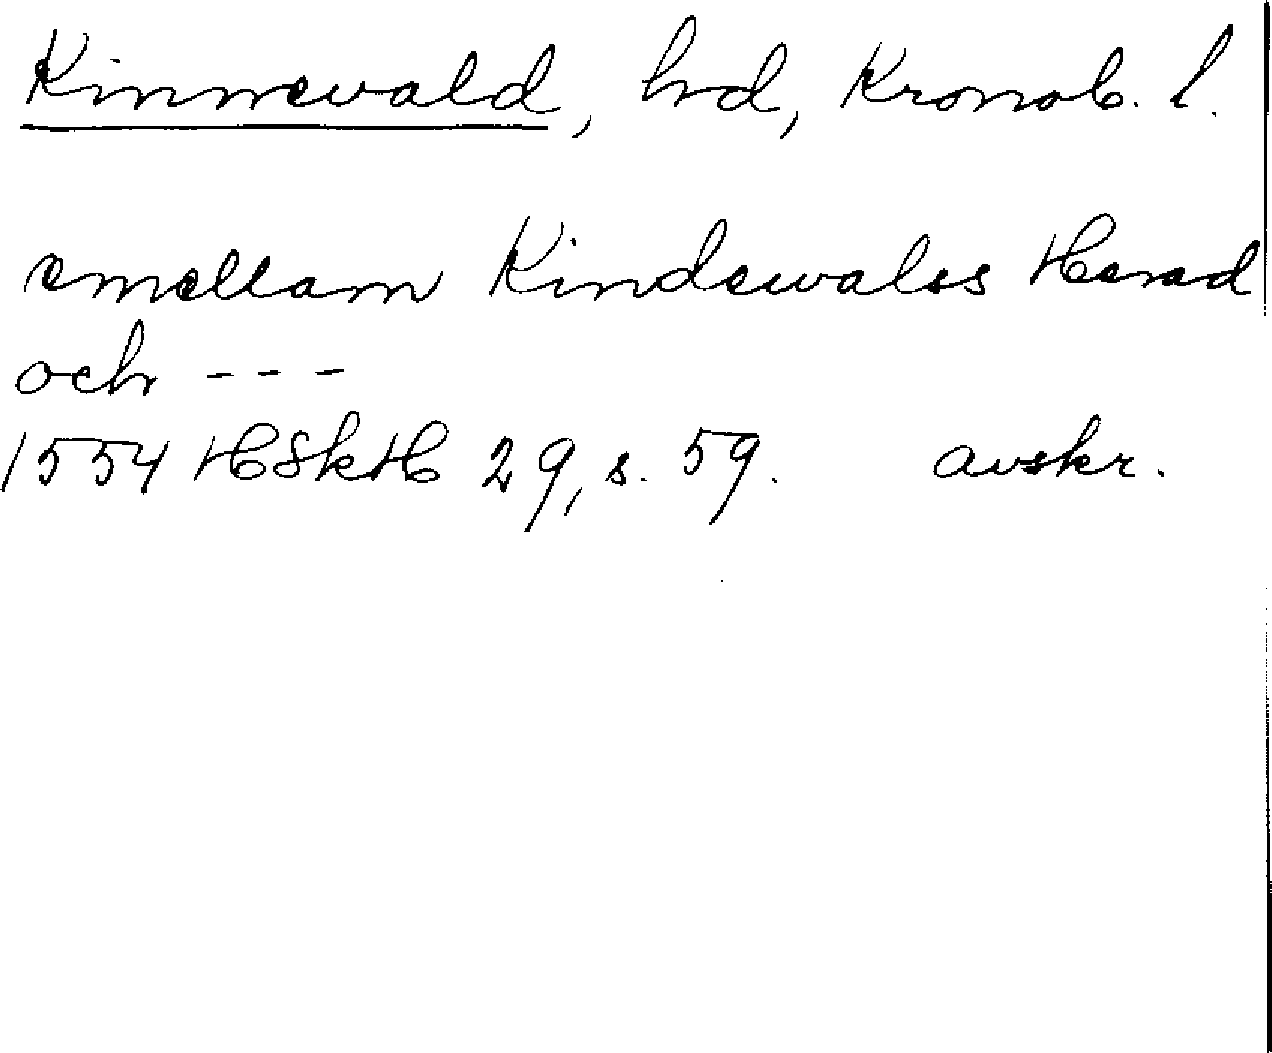 Kinnevald, hrd, Kronob. l.
emellam Kindewalss Herad
och ---
1554 HSkH 29, s. 59. avskr.